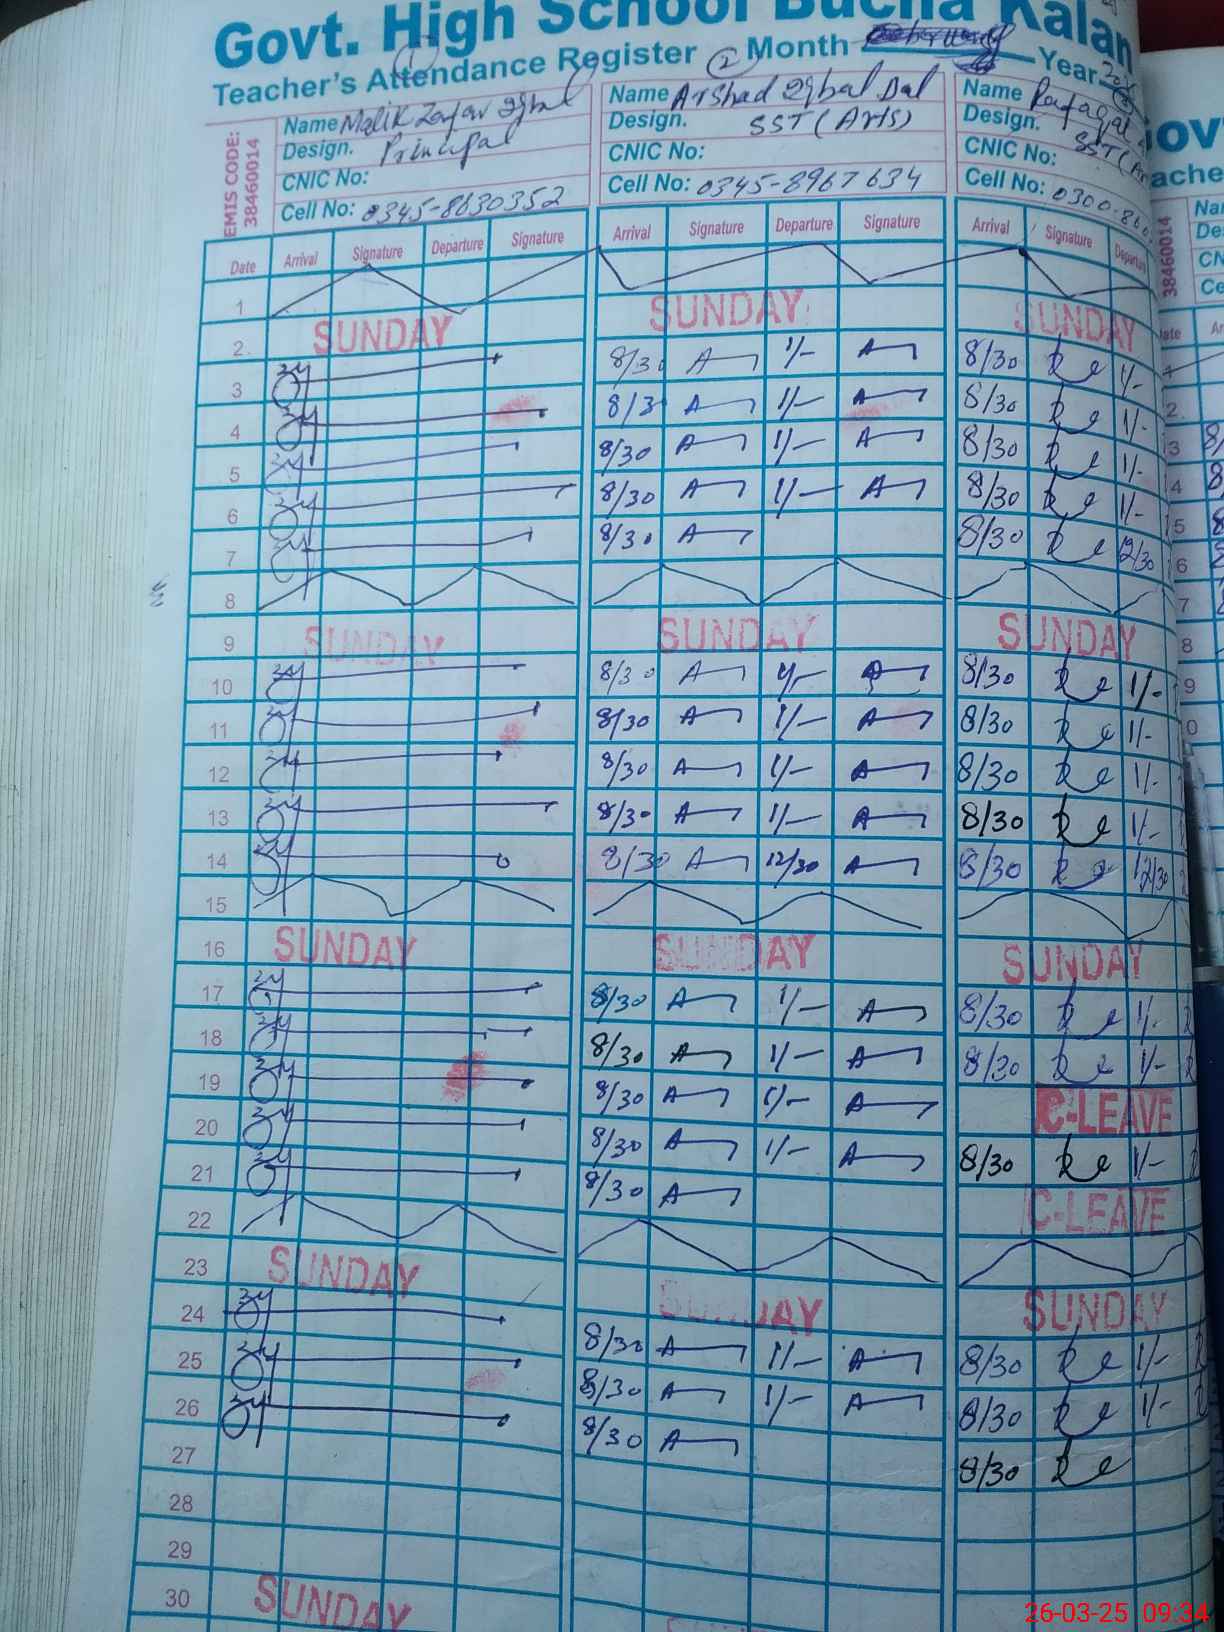 Govt. High School Bucha Kalan
Teacher's Attendance Register Month Year
1 2
EMIS CODE: 38460014
Name Malik Zafar Iqbal
Design. Principal
CNIC No:
Cell No: 0345-8630352
Name Arshad Iqbal
Design. SST (Arts)
CNIC No:
Cell No: 0345-8967634
Name
Design. SST (Ar
CNIC No:
Cell No: 0300-860
Date Arrival Signature Departure Signature Arrival Signature Departure Signature Arrival Signature Departure
1
2 SUNDAY SUNDAY SUNDAY
3 8/30 A 1/- A 8/30 1/-
4 8/30 A 1/- A 8/30 1/-
5 8/30 A 1/- A 8/30 1/-
6 8/30 A 1/- A 8/30 1/-
7 8/30 A 8/30 12/30
8
9 SUNDAY SUNDAY SUNDAY
10 8/30 A 1/- A 8/30 1/-
11 8/30 A 1/- A 8/30 1/-
12 8/30 A 1/- A 8/30 1/-
13 8/30 A 1/- A 8/30 1/-
14 8/30 A 12/30 A 8/30 12/30
15
16 SUNDAY SUNDAY SUNDAY
17 8/30 A 1/- A 8/30 1/-
18 8/30 A 1/- A 8/30 1/-
19 8/30 A 1/- A C-LEAVE
20 8/30 A 1/- A 8/30 1/-
21 8/30 A C-LEAVE
22
23 SUNDAY SUNDAY SUNDAY
24 8/30 A 1/- A 8/30 1/-
25 8/30 A 1/- A 8/30 1/-
26 8/30 A 8/30
27
28
29
30 SUNDAY
38460014
26-03-25 09:34